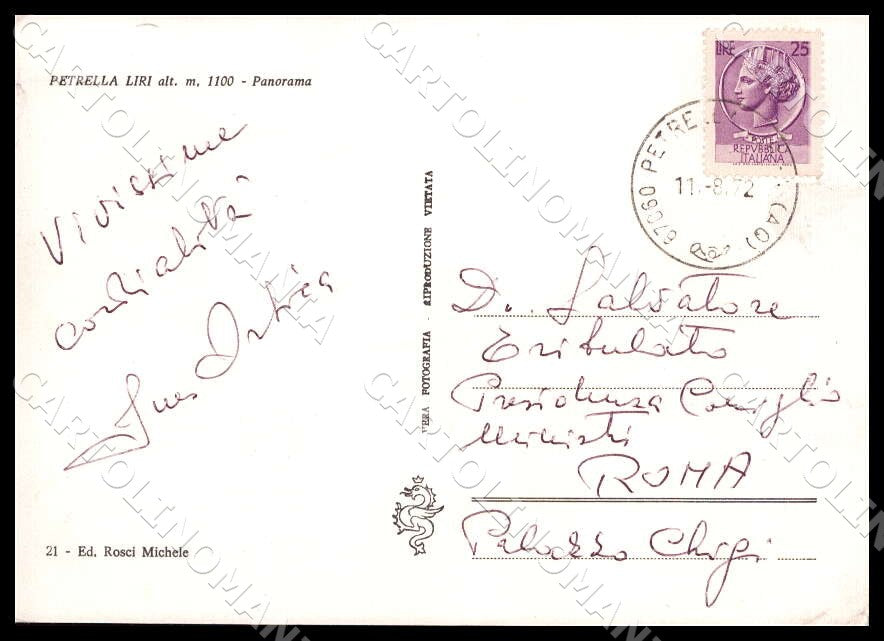 PETRELLA LIRI alt. m. 1100 - Panorama
LIRE 25
POSTE
REPVBBLICA
ITALIANA
67060 PETRE
(AQ)
11.-8.72
Vivissime
cordialità
D. Salvatore
Tribulato
Presidenza Consiglio
Ministri
ROMA
Palazzo Chigi
VERA FOTOGRAFIA - RIPRODUZIONE VIETATA
21 - Ed. Rosci Michele
CARTOLINOMANIA